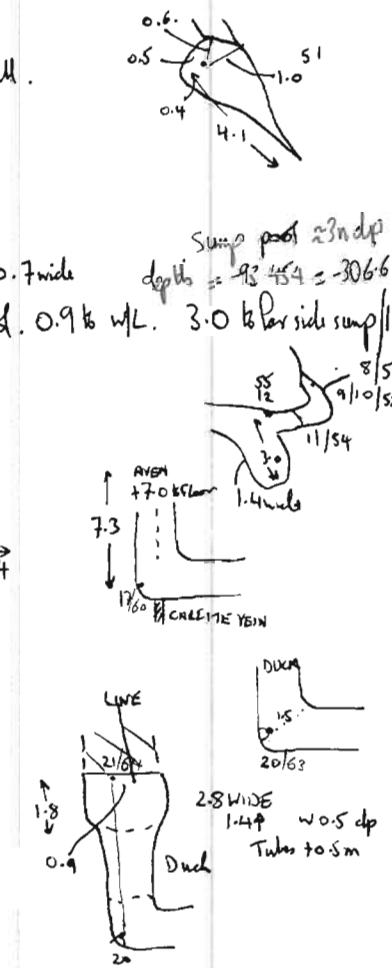 0.6.
0.5
51
1.0
0.4
4.1
Sump pool ≈3m dp
0.7 wide
depth = -93.454 = -306.6
0.9 to W/L. 3.0 to far side sump/
8/5
55
12
9/10/5
11/54
3.0
1.4 wide
AVEN
+7.0 to floor
7.3
17/60
CALCITE VEIN
DUCK
1.5
20/63
LINE
21/64
1.8
2.8 WIDE
1.4↑ w 0.5 dp
0.9
Duck
Tubes to 0.5m
20